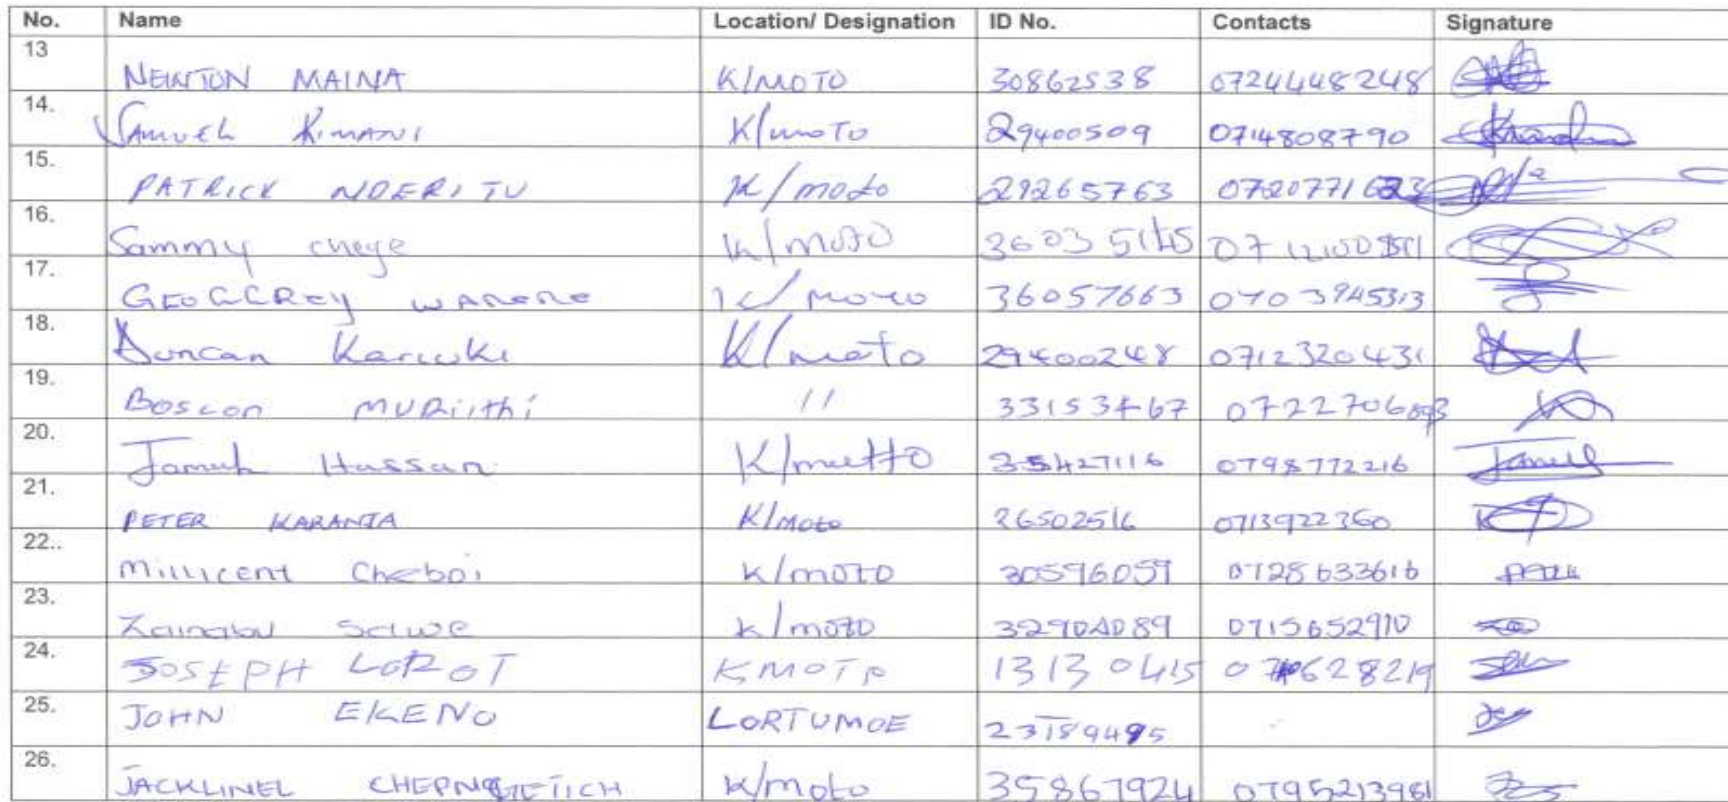 No. Name Location/ Designation ID No. Contacts Signature
13 NEWTON MAINA K/MOTO 30862538 07244448248
14. SAMUEL KIMANI K/moto 29400509 0714808790
15. PATRICK NDERITU K/moto 29265763
16. Sammy chege K/moto
17. GEOGGREY K/moto 36057663 0703945313
18. Duncan Kariuki K/moto 29400248 0712320431
19. Boscon MURiithi 11 33153467
20. Hassan K/motto 35427116 0798772216
21. PETER KARANJA K/Moto 26502516 0713922360
22.. Millicent Cheboi K/moto 30596059 0728633616
23. Zainabu K/moto 0715652910
24. JOSEPH LOROT KMOTO 13130415
25. JOHN EKENO LORTUMOE
26. JACKLINEL K/moto 35867924 0795213981